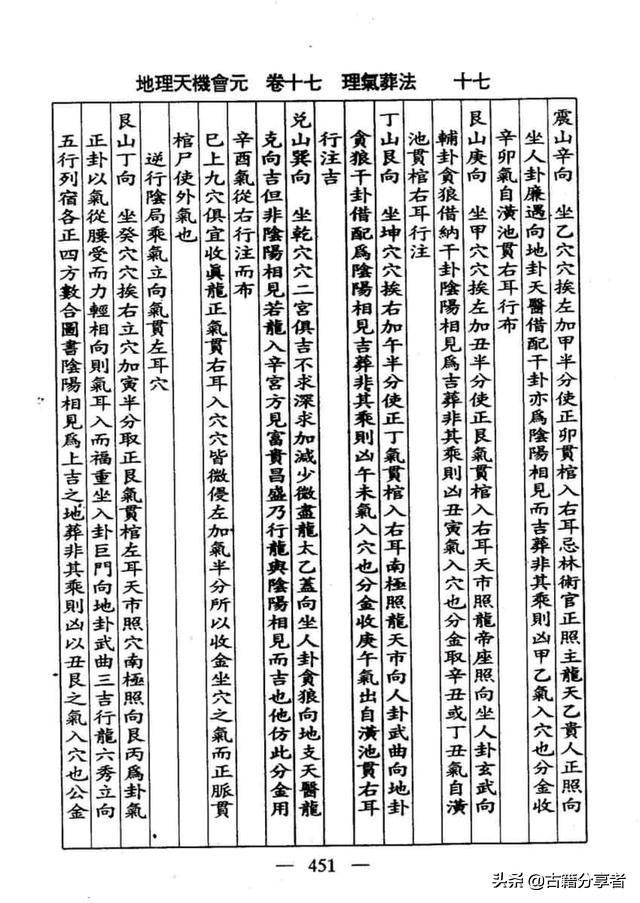 地理天機會元　卷十七　理氣葬法　十七
震山辛向　坐乙穴穴挨左加甲半分使正卯貫棺入右耳忌林術官正照主龍天乙貴人正照向
坐人卦廉遇向地卦天醫借配干卦亦為陰陽相見而吉葬非其乘則凶甲乙氣入穴也分金收
辛卯氣自潢池貫右耳行布
艮山庚向　坐甲穴穴挨左加丑半分使正艮氣貫棺入右耳天市照龍帝座照向坐人卦玄武向
輔卦貪狼借納干卦陰陽相見為吉葬非其乘則凶丑寅氣入穴也分金取辛丑或丁丑氣自潢
池貫棺右耳行注
丁山艮向　坐坤穴穴挨右加午半分使正丁氣貫棺入右耳南極照龍天市向人卦武曲向地卦
貪狼干卦借配為陰陽相見吉葬非其乘則凶午未氣入穴也分金收庚午氣出自潢池貫右耳
行注吉
兌山巽向　坐乾穴穴二宮俱吉不求深求加減少微盡龍太乙蓋向坐人卦貪狼向地支天醫龍
克向吉但非陰陽相見若龍入辛宮方見富貴昌盛乃行龍與陰陽相見而吉也他仿此分金用
辛酉氣從右行注而布
巳上九穴俱宜收眞龍正氣貫右耳入穴穴皆微優左加氣半分所以收金坐穴之氣而正脈貫
棺尸使外氣也
逆行陰局乘氣立向氣貫左耳穴
艮山丁向　坐癸穴穴挨右立穴加寅半分取正艮氣貫棺左耳天市照穴南極照向艮丙為卦氣
正卦以氣從腰受而力輕相向則氣耳入而福重坐入卦巨門向地卦武曲三吉行龍六秀立向
五行列宿各正四方數合圖書陰陽相見為上吉之地葬非其乘則凶以丑艮之氣入穴也公金
— 451 —
头条@古籍分享者